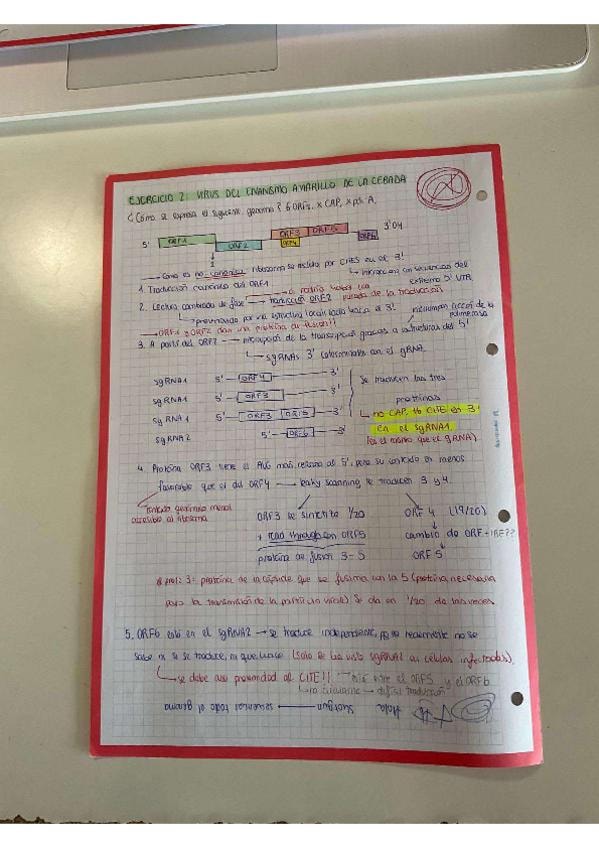 EJERCICIO 2: VIRUS DEL ENANISMO AMARILLO DE LA CEBADA
¿Cómo se expresa el siguiente genoma? 6 ORFs, x CAP, x poli A.
5' ORF1 ORF2 ORF3 ORF4 ORF5 ORF6 3'OH
Como es no canónica ribosoma se recluta por CITES en el 3'
interacciona con secuencias del
extremo 5' UTR
1. Traducción canónica del ORF1
2. Lectura cambiada de fase → traducción ORF2
parada de la traducción
promoviendo por una estructura localizada hacia el 3'
→ ORF1 y ORF2 dan una proteína de fusión!!
3. A partir del ORF2 → interrupción de la transcripción gracias a estructuras del 5'
interrumpen acción de la
polimerasa
sgRNAs 3' coterminales con el gRNA
sgRNA1 5' ORF4 3'
sgRNA1 5' ORF3 3'
sgRNA1 5' ORF3 ORF5 3'
sgRNA2 5' ORF6 3'
Se traducen las tres
proteínas
no CAP, tb CITE en 3'
en el sgRNA1
(es el mismo que el gRNA)
4. Proteína ORF3 tiene el AUG más cercano al 5', pero su contexto es menos
favorable que el del ORF4 → leaky scanning se traducen 3 y 4.
contexto genómico menos
accesible al ribosoma
ORF3 se sintetiza 1/20
+ read through con ORF5
proteína de fusión 3-5
ORF 4 (19/20)
cambio de ORF + IRE??
ORF 5
prot 3: proteína de la cápside que se fusiona con la 5 (proteína necesaria
para la transmisión de la partícula viral) Se da en 1/20 de las veces
5. ORF6 está en el sgRNA2 → se traduce independiente, realmente no se
sabe ni si se traduce, ni que hace (solo se ha visto sgRNA2 en células infectadas).
se debe a su proximidad al CITE!! → está entre el ORF5 y el ORF6
→ dificil traducción
Shotgun → secuenciar todo el genoma
Hola